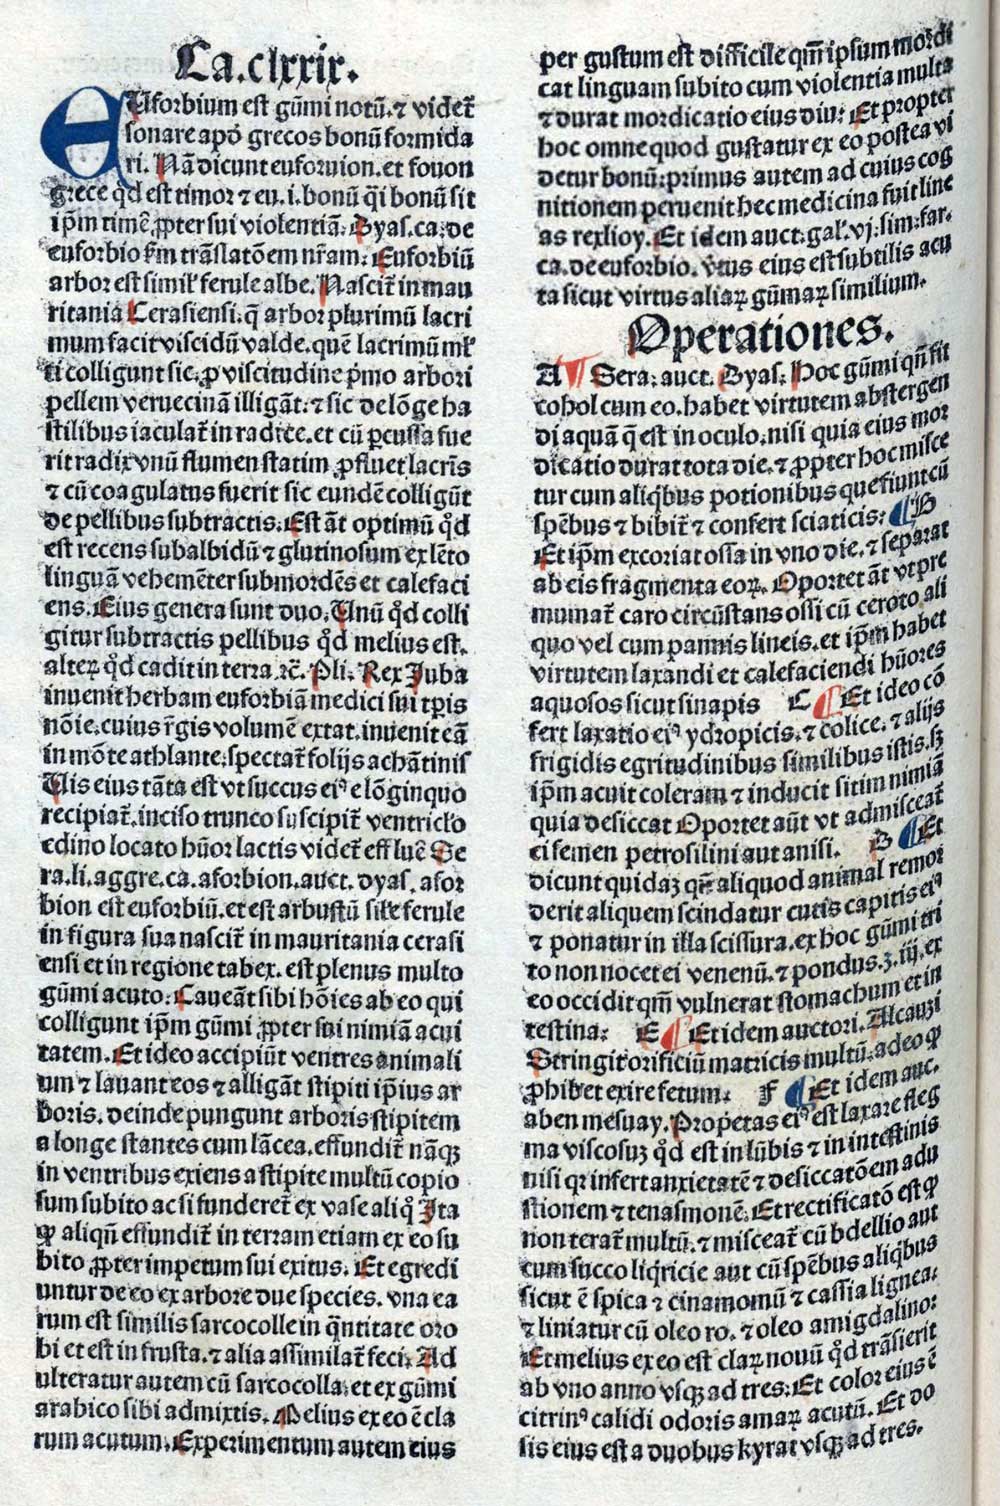 Ca.clxxix.
EUforbium est gūmi notū.⁊ videt̄
sonare apō grecos bonū formida
ri. Nā dicunt euforuion.et fouon
grece q̇d est timor ⁊ eu.i.bonū q̇i bonū sit
ip̄m timē ꝓpter sui violentiā. Dyas.ca.de
euforbio ẜm trāslatōem nr̄am. Euforbiū
arbor est simil' ferule albe. Nascit̄ in mau
ritania Cerasiensi.q̄ arbor plurimū lacri
mum facit viscidū valde.quē lacrimū ml'
ti colligunt sic.ꝓ viscitudine p̄mo arbori
pellem veruecinā illigāt.⁊ sic de lōge ha
stilibus iaculat̄ in radice.et cū ꝑcussa fue
rit radix vnū flumen statim ꝓfluet lacrīs
⁊ cū coagulatus fuerit sic eundē colligūt
de pellibus subtractis. Est āt optimū q̇d
est recens subalbidū ⁊ glutinosum ex lēto
linguā vehemēter submordēs et calefaci
ens. Eius genera sunt duo. Unū q̇d colli
gitur subtractis pellibus q̇d melius est.
alteꝝ q̇d cadit in terra ⁊c̄. Pli. Rex Juba
inuenit herbam euforbiā medici sui tꝑis
nōie.cuius r̄gis volumē extat.inuenit eā
in mōte athlante.spectat̄ folijs achātinis
Uis eius tāta est vt succus eiꝰ e lōginquo
recipiat̄.inciso trunco suscipit̄ ventriclo
edino locato hūor lactis videt̄ effluē Se
ra.li.aggre.ca.aforbion.auct.dyas.afor
bion est euforbiū.et est arbustū sile ferule
in figura sua nascit̄ in mauritania cerasi
ensi et in regione tabex.est plenus multo
gūmi acuto. Caueāt sibi hōies ab eo qui
colligunt ip̄m gūmi ꝓpter sui nimiā acui
tatem. Et ideo accipiūt ventres animali
um ⁊ lauant eos ⁊ alligāt stipiti ip̄ius ar
boris.deinde pungunt arboris stipitem
a longe stantes cum lācea.effundit̄ nāqꝫ
in ventribus exiens a stipite multū copio
sum subito ac si funderet̄ ex vase aliq̊ Ita
ꝙ aliqn̄ effundit̄ in terram etiam ex eo su
bito ꝓpter impetum sui exitus. Et egredi
untur de eo ex arbore due species.vna ea
rum est similis sarcocolle in q̄ntitate oro
bi et est in frusta.⁊ alia assimilat̄ feci. Ad
ulteratur autem cū sarcocolla.et ex gūmi
arabico sibi admixtis. Melius ex eo ē cla
rum acutum. Experimentum autem eius
per gustum est difficile qm̄ ipsum mordi
cat linguam subito cum violentia multa
⁊ durat mordicatio eius diu. Et propter
hoc omne quod gustatur ex eo postea vi
detur bonū.primus autem ad cuius cog
nitionem peruenit hec medicina fuit line
as rex lioy. Et idem auct.gal'.vj.sim.far.
ca.de euforbio. v̓tus eius est subtilis acu
ta sicut virtus aliaꝝ gūmaꝝ similium.
Operationes.
A ¶ Sera.auct.Dyas. Hoc gūmi qn̄ fit
cohol cum eo.habet virtutem abstergen
di aquā q̄ est in oculo.nisi quia eius mor
dicatio durat tota die.⁊ ꝓpter hoc misce
tur cum aliq̇bus potionibus que fiunt cū
spēbus ⁊ bibit̄ ⁊ confert sciaticis. ¶ B
Et ip̄m excoriat ossa in vno die.⁊ separat
ab eis fragmenta eoꝝ. Oportet āt vt pre
mumat̄ caro circūstans ossi cū ceroto ali
quo vel cum pannis lineis.et ip̄m habet
virtutem laxandi et calefaciendi hūores
aquosos sicut sinapis C ¶ Et ideo cō
fert laxatio eiꝰ ydropicis.⁊ colice.⁊ alijs
frigidis egritudinibus similibus istis.sꝫ
ip̄m acuit coleram ⁊ inducit sitim nimiā
quia desiccat Oportet aūt vt admisceat̄
ei semen petrosilini aut anisi. D ¶ Et
dicunt quidaꝫ qn̄ aliquod animal remor
derit aliquem scindatur cutis capitis eiꝰ
⁊ ponatur in illa scissura.ex hoc gūmi tri
to non nocet ei venenū.⁊ pondus.ʒ.iij.ex
eo occidit qm̄ vulnerat stomachum et in
testina. E ¶ Et idem auctori.Alcanzi
Stringit orificiū matricis multū.adeo ꝙ
ꝓhibet exire fetum. F ¶ Et idem auc.
aben mesuay. Propetas eiꝰ est laxare fleg
ma viscosuꝫ q̇d est in lūbis ⁊ in intestinis
nisi qꝛ infert anxietatē ⁊ desiccatōem adu
stionem ⁊ tenasmonē. Et rectificatō est ꝙ
non terat̄ multū.⁊ misceat̄ cū bdellio aut
cum succo liq̇ricie aut cū spēbus aliq̇bus
sicut ē spica ⁊ cinamomū ⁊ cassia lignea.
⁊ liniatur cū oleo ro.⁊ oleo amigdalino.
Et melius ex eo est claꝝ nouū q̇d trāsierit
ab vno anno vsqꝫ ad tres. Et color eius ē
citrinꝰ calidi odoris amaꝝ acutū. Et do
sis eius est a duobus kyrat vsqꝫ ad tres.